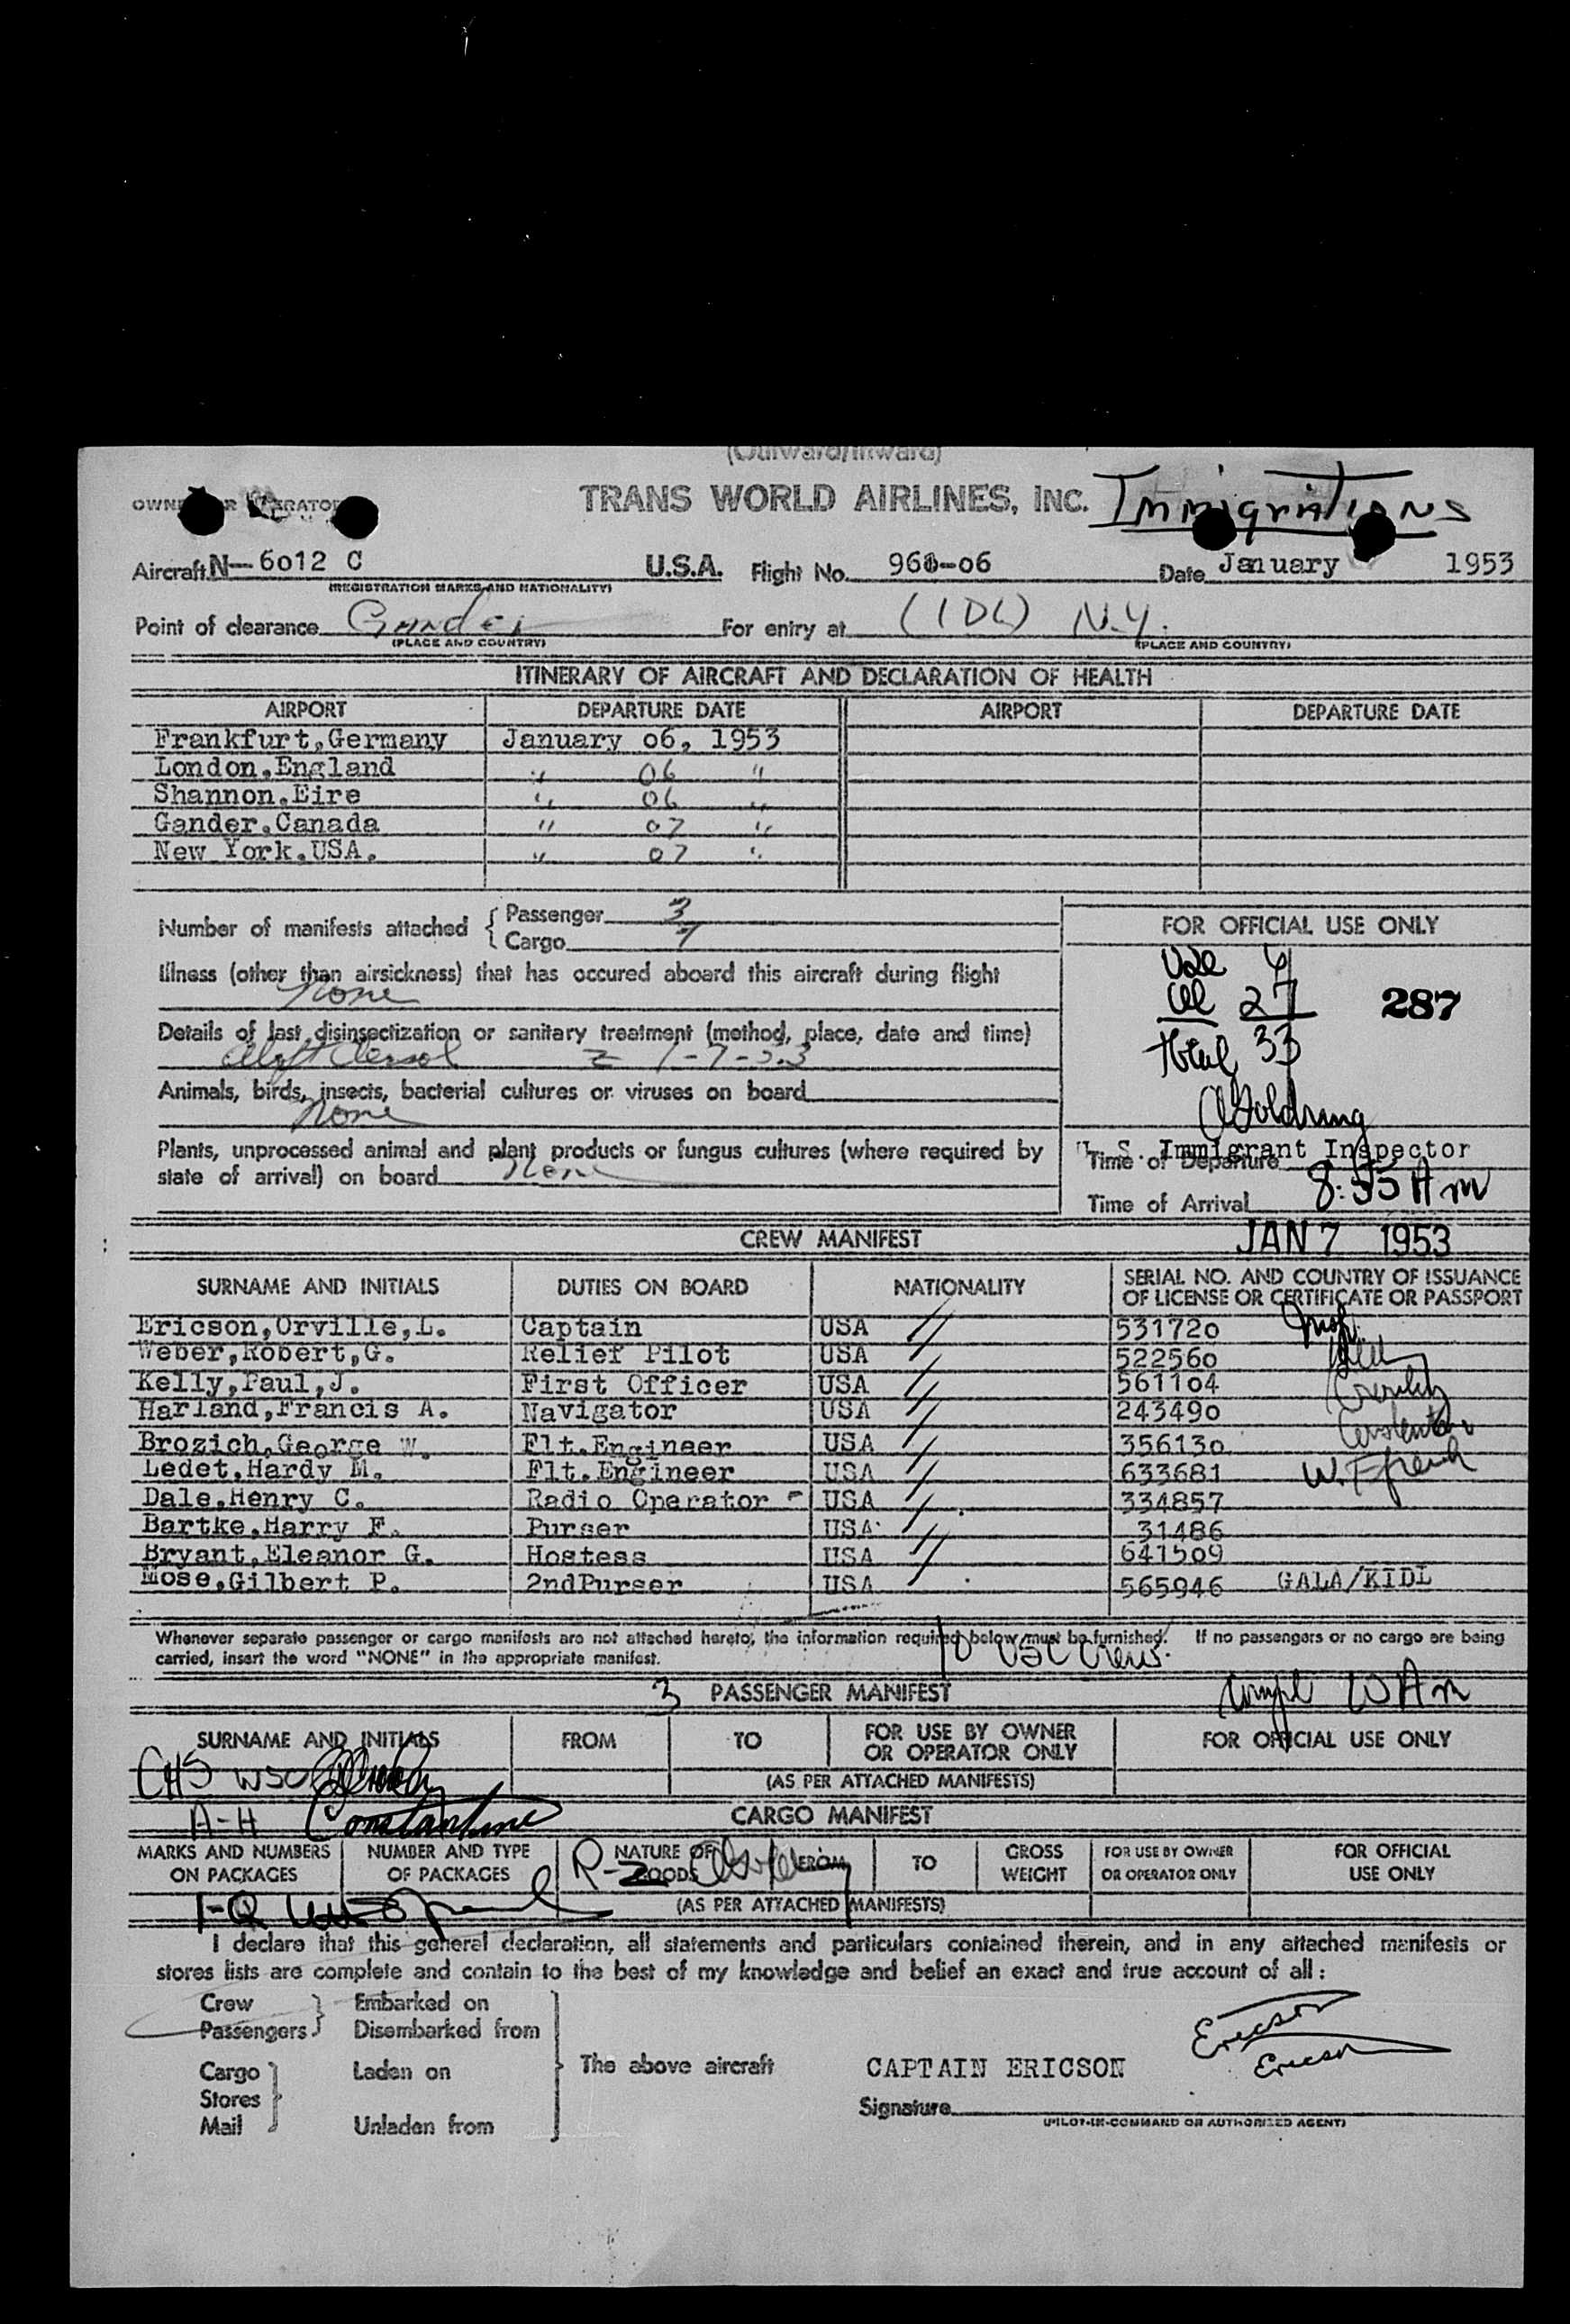 (Outward/Inward)
OWNER OR OPERATOR TRANS WORLD AIRLINES, INC. Immigrations
Aircraft N-6012 C U.S.A. Flight No. 960-06 Date January 1953
(REGISTRATION MARKS AND NATIONALITY)
Point of clearance Gander For entry at (IDL) N.Y.
(PLACE AND COUNTRY) (PLACE AND COUNTRY)
ITINERARY OF AIRCRAFT AND DECLARATION OF HEALTH
AIRPORT DEPARTURE DATE AIRPORT DEPARTURE DATE
Frankfurt,Germany January 06, 1953
London.England " 06 "
Shannon.Eire " 06 "
Gander.Canada " 07 "
New York.USA. " 07 "
Number of manifests attached Passenger 3
Cargo 7
FOR OFFICIAL USE ONLY
Illness (other than airsickness) that has occured aboard this aircraft during flight
None
27 287
Details of last disinsectization or sanitary treatment (method, place, date and time)
Total 33
Aloft Aerosol Z 1-7-53
Animals, birds, insects, bacterial cultures or viruses on board
None
Plants, unprocessed animal and plant products or fungus cultures (where required by
state of arrival) on board None
U. S. Immigrant Inspector
Time of Departure
Time of Arrival 8:55 Am
JAN 7 1953
CREW MANIFEST
SURNAME AND INITIALS DUTIES ON BOARD NATIONALITY SERIAL NO. AND COUNTRY OF ISSUANCE
OF LICENSE OR CERTIFICATE OR PASSPORT
Ericson,Orville,L. Captain USA 531720
Weber,Robert,G. Relief Pilot USA 522560
Kelly,Paul,J. First Officer USA 561104
Harland,Francis A. Navigator USA 243490
Brozich,George W. Flt.Engineer USA 356130
Ledet.Hardy M. Flt.Engineer USA 633681 W. French
Dale.Henry C. Radio Operator - USA 334857
Bartke.Harry F. Purser USA 31486
Bryant,Eleanor G. Hostess USA 641509
Mose,Gilbert P. 2ndPurser USA 565946 GALA/KIDL
Whenever separate passenger or cargo manifests are not attached hereto, the information required below must be furnished. If no passengers or no cargo are being
carried, insert the word "NONE" in the appropriate manifest.
10 USC Crew.
3 PASSENGER MANIFEST
SURNAME AND INITIALS FROM TO FOR USE BY OWNER
OR OPERATOR ONLY FOR OFFICIAL USE ONLY
CHS
(AS PER ATTACHED MANIFESTS)
A-H Constantine CARGO MANIFEST
MARKS AND NUMBERS
ON PACKAGES NUMBER AND TYPE
OF PACKAGES NATURE OF
GOODS FROM TO GROSS
WEIGHT FOR USE BY OWNER
OR OPERATOR ONLY FOR OFFICIAL
USE ONLY
R-Z
I-Q (AS PER ATTACHED MANIFESTS)
I declare that this general declaration, all statements and particulars contained therein, and in any attached manifests or
stores lists are complete and contain to the best of my knowledge and belief an exact and true account of all :
Crew Embarked on
Passengers Disembarked from
Cargo Laden on The above aircraft CAPTAIN ERICSON Ericson
Ericson
Stores
Mail Unladen from
Signature
(PILOT-IN-COMMAND OR AUTHORIZED AGENT)